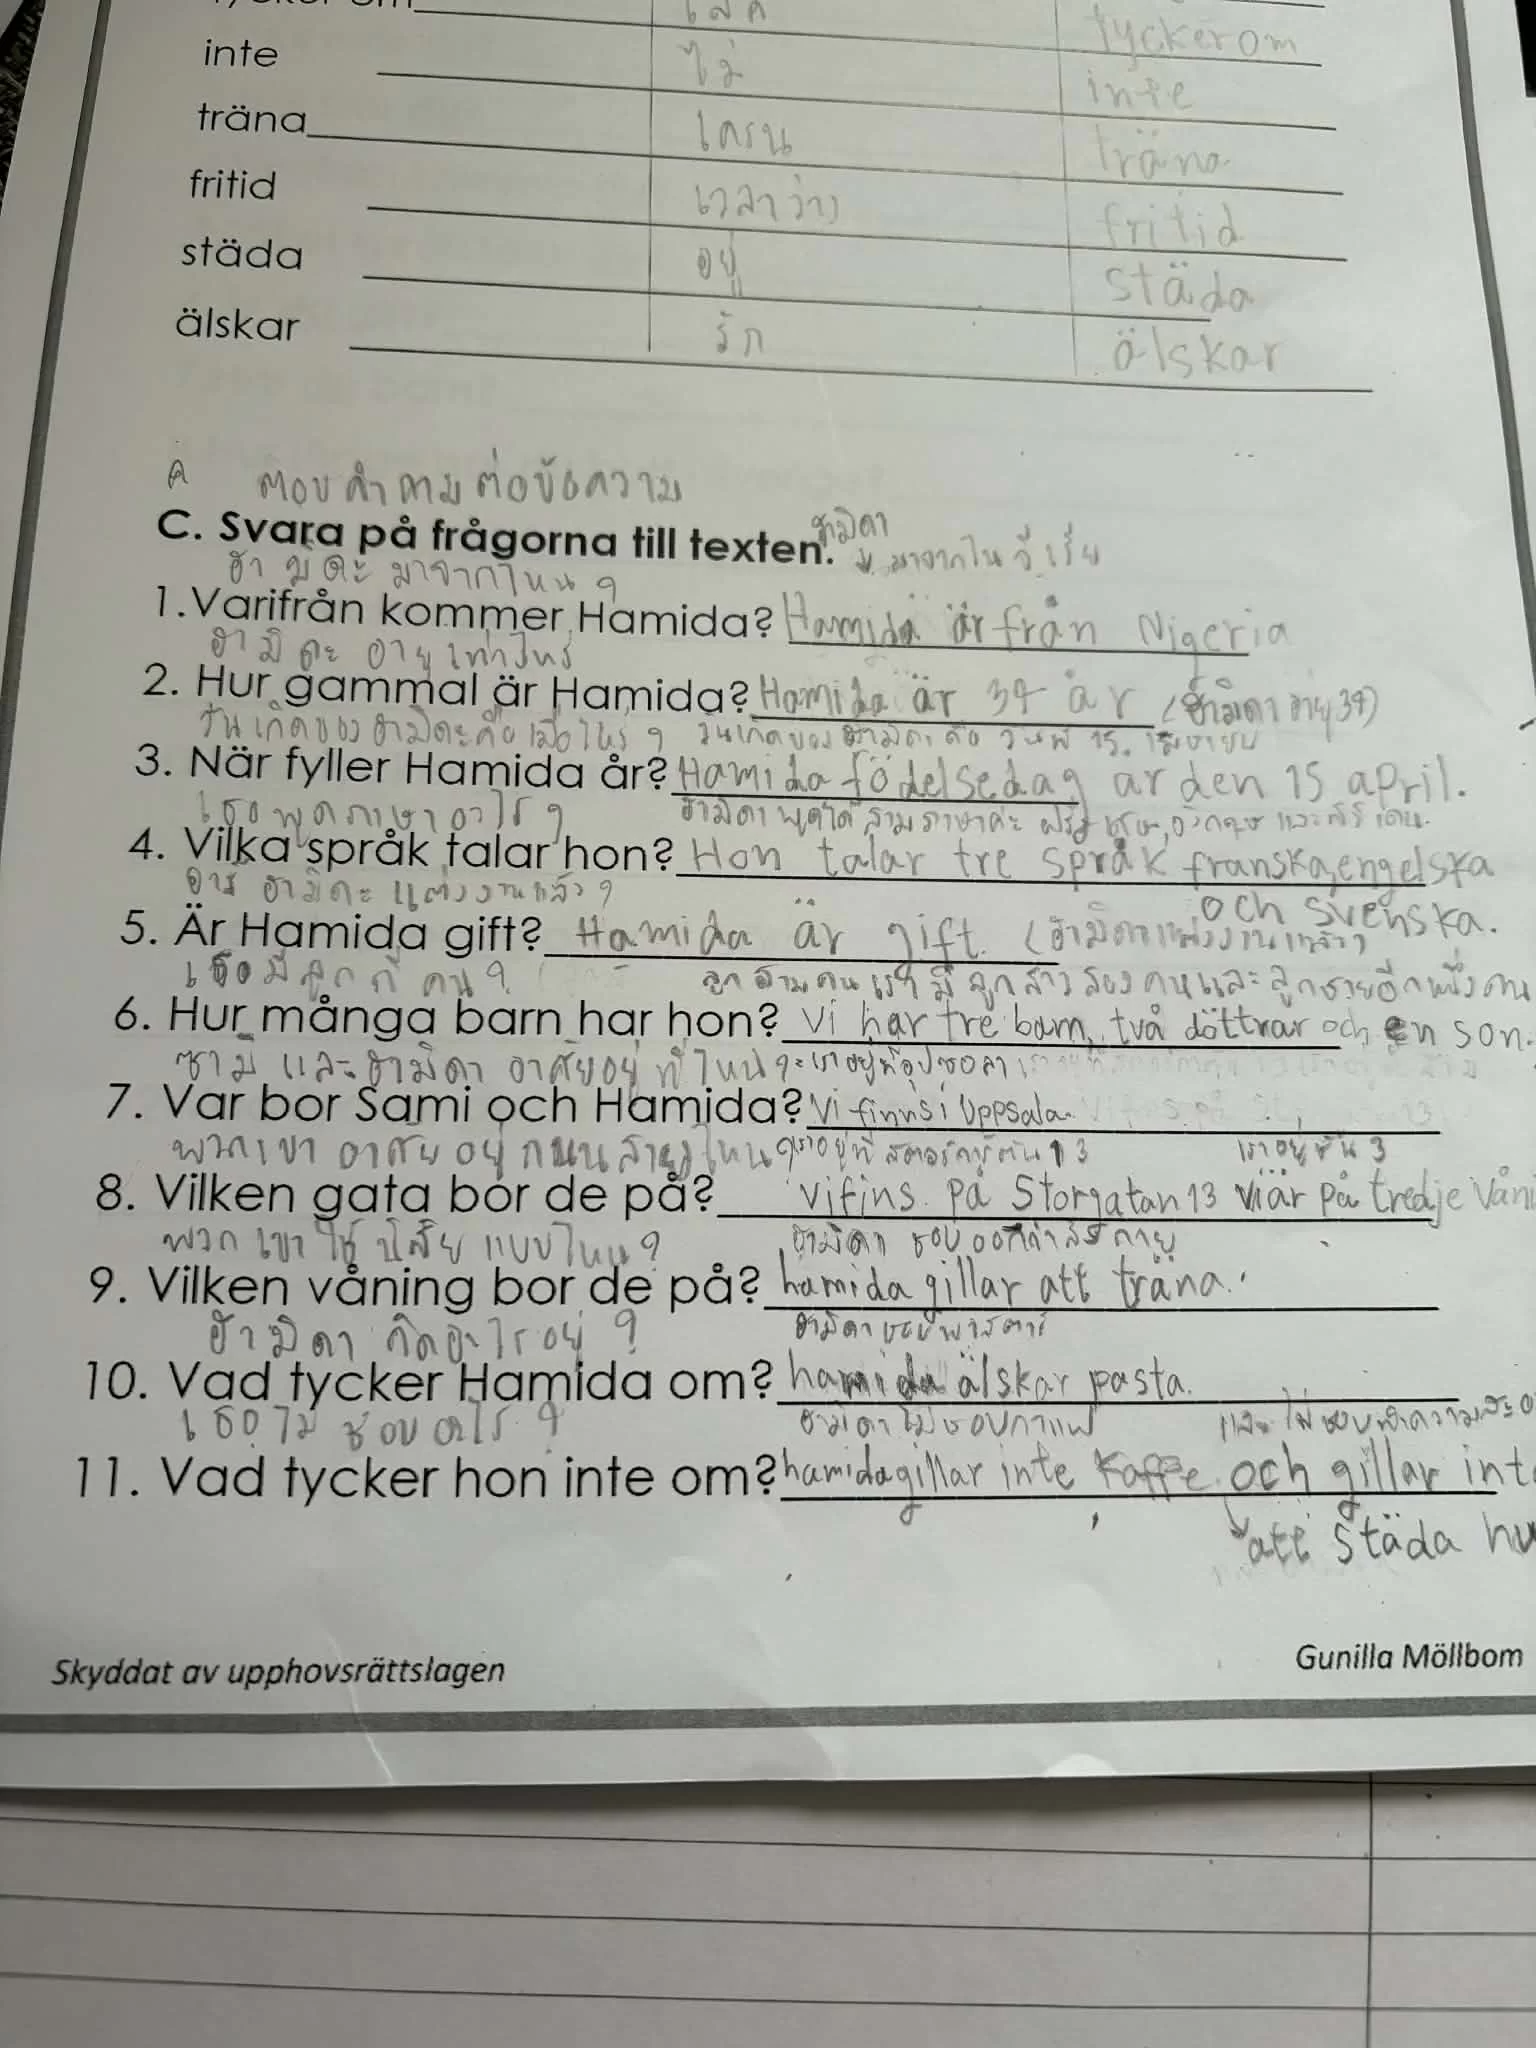 เลิศ tyckerom
inte ไม่ inte
träna เทรน träna
fritid เวลาว่าง fritid
städa อยู่ städa
älskar รัก älskar
A ตอบคำถามต่อข้อความ
C. Svara på frågorna till texten. ฮามิดา มาจากไนจีเรีย
ฮามิดะ มาจากไหน ?
1.Varifrån kommer Hamida? Hamida är från Nigeria
ฮามิดะ อายุเท่าไหร่
2. Hur gammal är Hamida? Hamida är 34 år (ฮามิดาอายุ 34)
วันเกิดของฮามิดะคือเมื่อไหร่ ? วันเกิดของฮามิดา คือ วันที่ 15. เมษายน
3. När fyller Hamida år? Hamida födelsedag är den 15 april.
เธอพูดภาษาอะไร ? ฮามิดาพูดได้สามภาษาค่ะ ฝรั่งเศษ, อังกฤษ และสวีเดน.
4. Vilka språk talar hon? Hon talar tre språk franska,engelska
och svenska.
ฮามิดะ แต่งงานแล้ว ?
5. Är Hamida gift? Hamida är gift. (ฮามิดาแต่งงานแล้ว)
เธอมีลูกกี่คน ? ลูกสามคน เรามีลูกสาวสองคนและลูกชายอีกหนึ่งคน
6. Hur många barn har hon? Vi har tre barn, två döttrar och en son.
ซามี และ ฮามิดา อาศัยอยู่ที่ไหน ? เราอยู่ที่อุปซอลา
7. Var bor Sami och Hamida? Vi finns i Uppsala.
พวกเขา อาศัยอยู่ ถนนสายไหน ? เราอยู่ที่ 13 เราอยู่ชั้น 3
8. Vilken gata bor de på? Vifins. på Storgatan 13 Viär på tredje Våni
พวกเขาใช้ แบบไหน ? ฮามิดา ชอบออกกำลังกาย
9. Vilken våning bor de på? hamida gillar att träna.
ฮามิดา คิดอะไรอยู่ ? ฮามิดา ชอบพาสต้า
10. Vad tycker Hamida om? hamida älskar pasta.
เธอไม่ ชอบอะไร ? ฮามิดาไม่ชอบกาแฟ และไม่ชอบทำความสะอ
11. Vad tycker hon inte om? hamidagillar inte kaffe och gillar int
att städa hu
Skyddat av upphovsrättslagen
Gunilla Möllbom